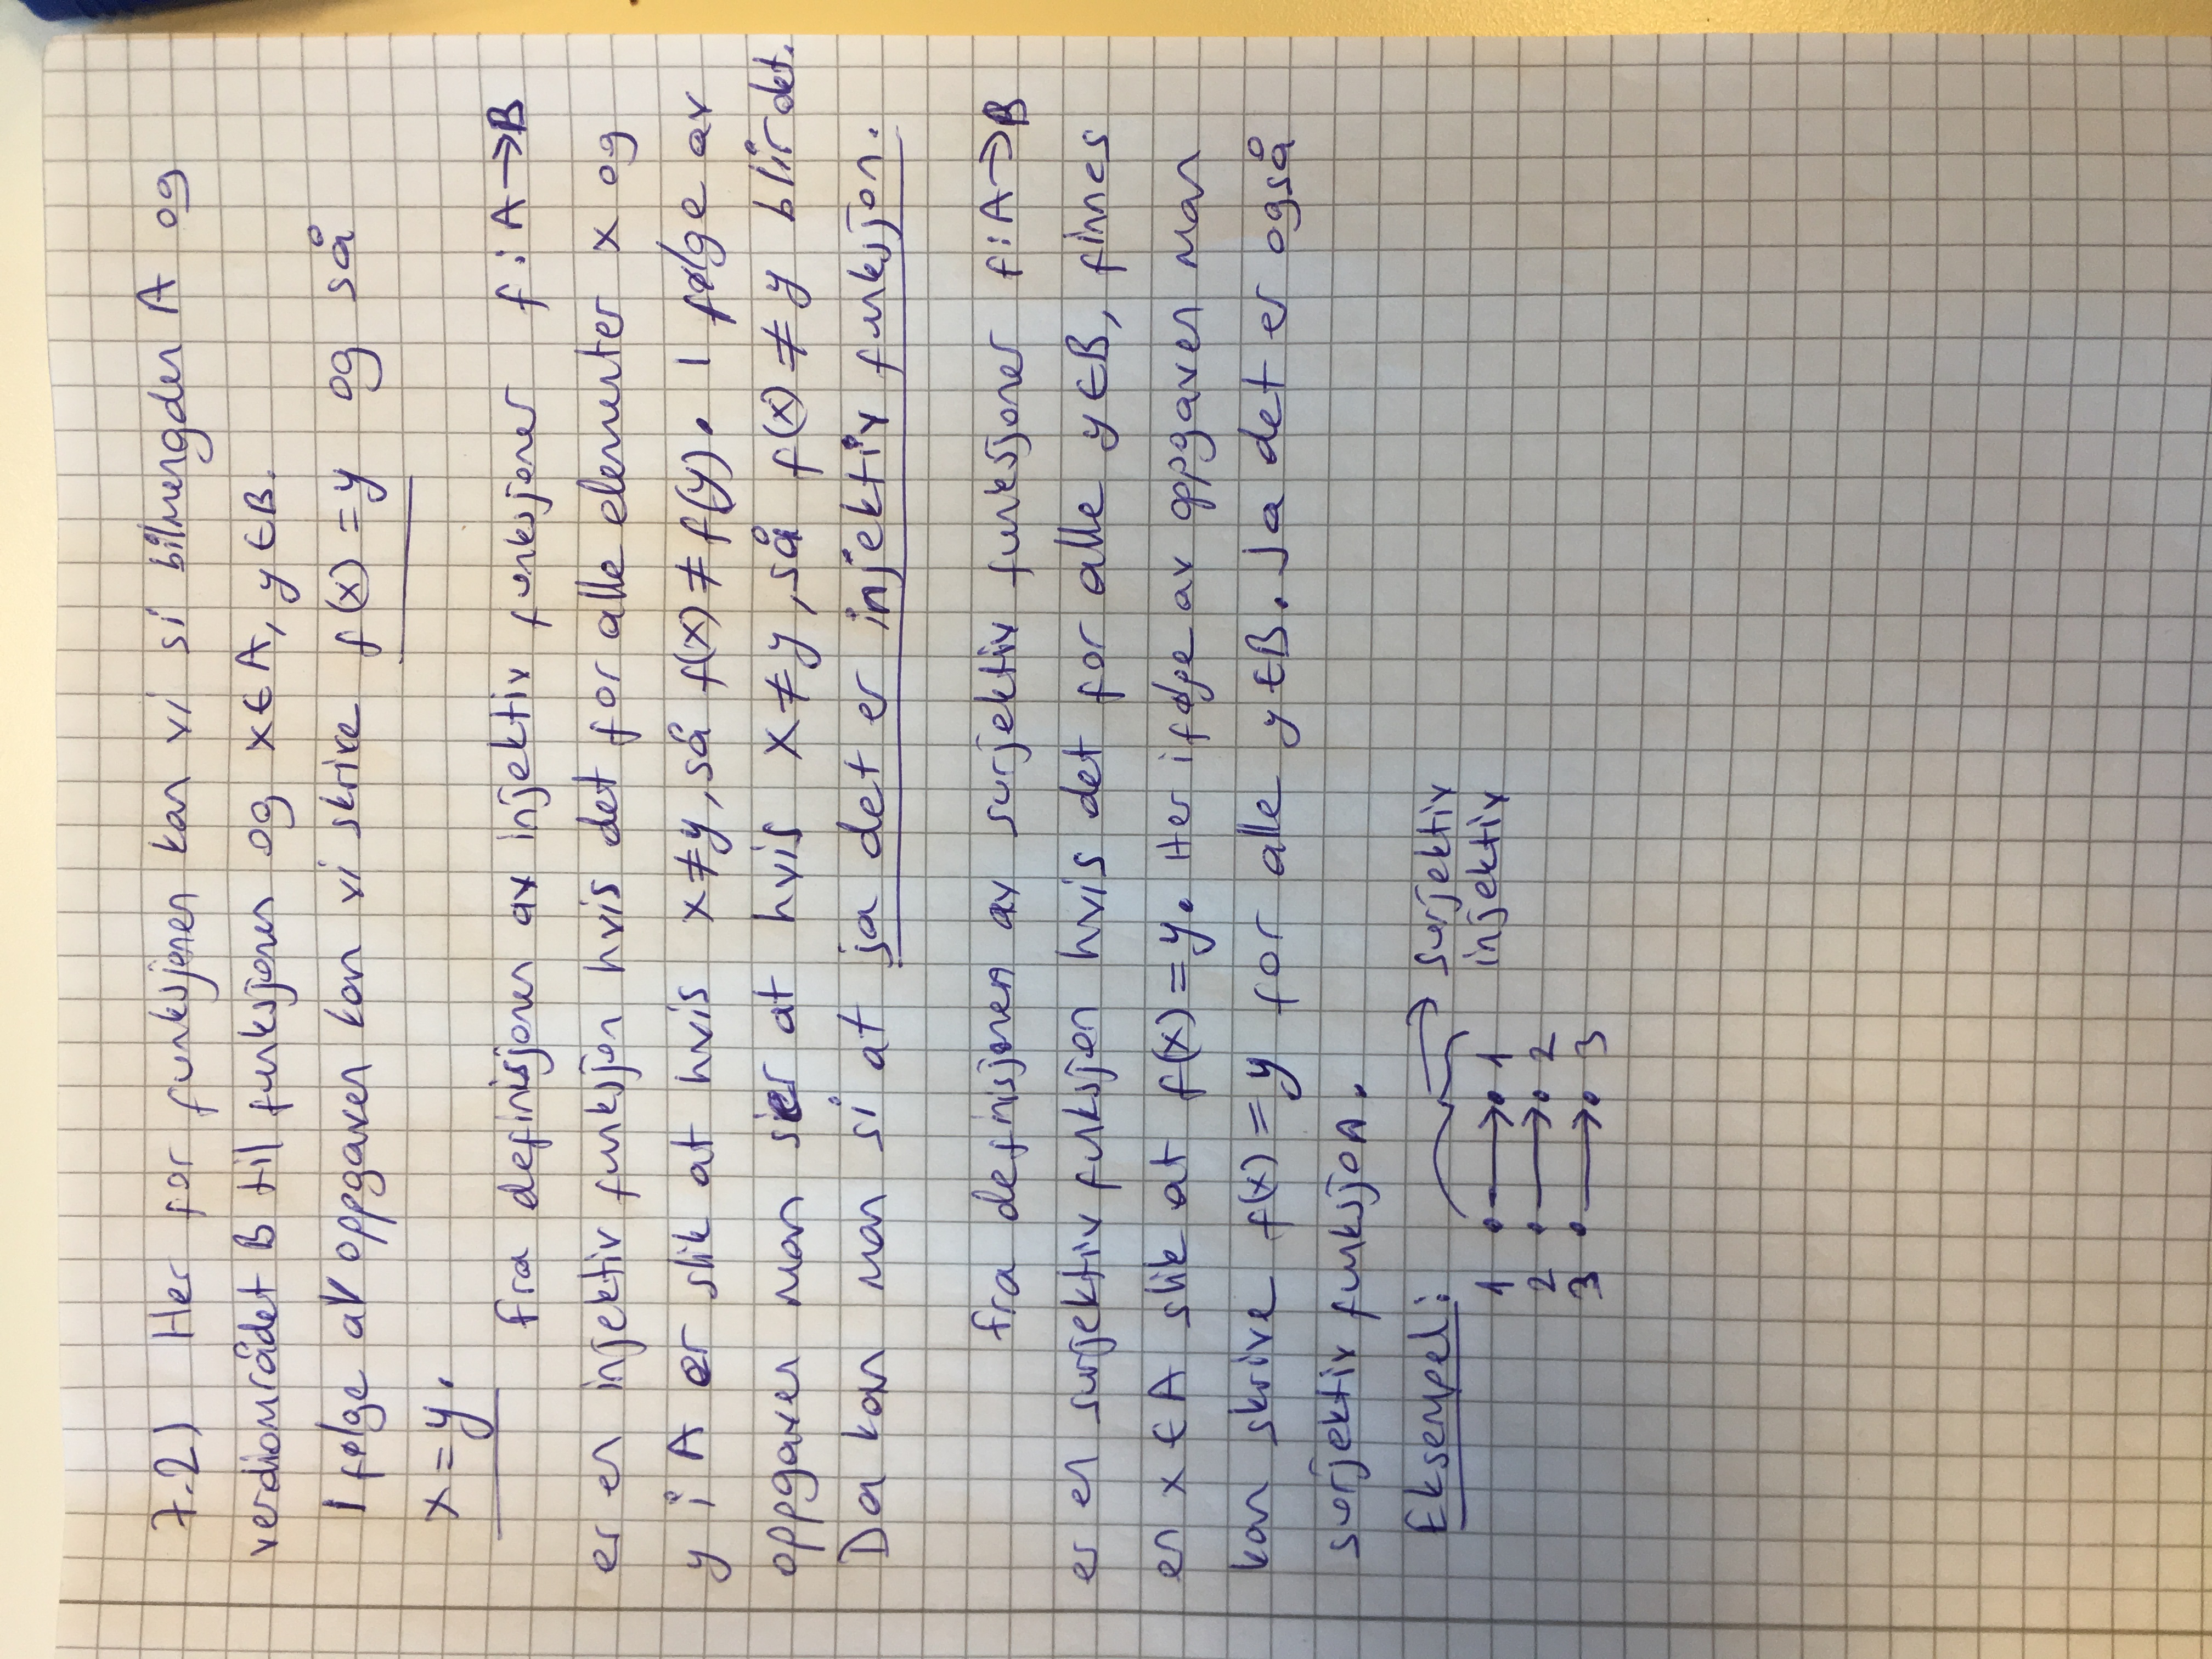 7.2) Her for funksjonen kan vi si bilmengden A og
verdiområdet B til funksjonen og x∈A, y∈B.
I følge av oppgaven kan vi skrive f(x) = y og så
x = y.
fra definisjonen av injektiv funksjoner f: A→B
er en injektiv funksjon hvis det for alle elementer x og
y i A er slik at hvis x≠y, så f(x) ≠ f(y). I følge av
oppgaven man sier at hvis x≠y, så f(x) ≠ y blir det.
Da kan man si at ja det er injektiv funksjon.
fra definisjonen av surjektiv funksjoner f: A→B
er en surjektiv fuksjon hvis det for alle y∈B, finnes
en x ∈ A slik at f(x) = y. Her ifølge av oppgaven man
kan skrive f(x) = y for alle y∈B. Ja det er også
surjektiv funksjon.
Eksempel: → surjektiv
injektiv
1 → 1
2 → 2
3 → 3